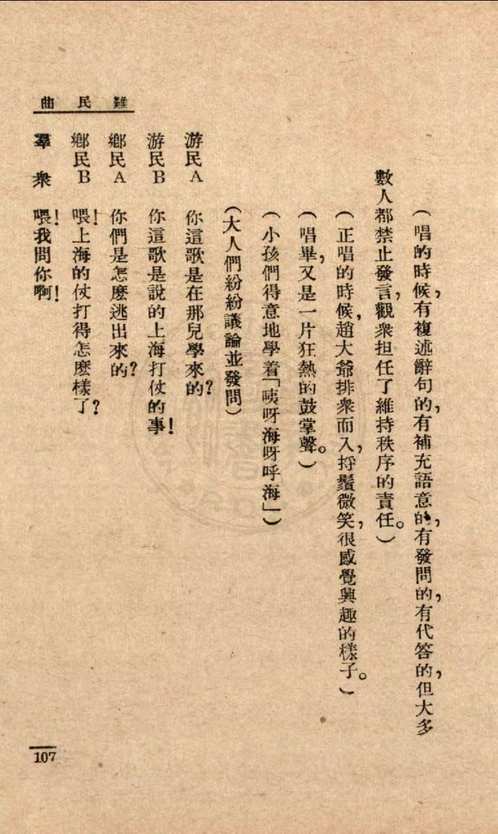 難民曲
（唱的時候，有複述辭句的，有補充語意的，有發問的，有代答的，但大多
數人都禁止發言，觀衆担任了維持秩序的責任。）
（正唱的時候，趙大爺排衆而入，捋鬚微笑，很感覺興趣的樣子。）
（唱畢，又是一片狂熱的鼓掌聲。）
（小孩們得意地學着「咦呀海呀呼海」）
（大人們紛紛議論並發問）
游民A　你這歌是在那兒學來的？
游民B　你這歌是說的上海打仗的事！
鄉民A　你們是怎麼逃出來的？
鄉民B　喂！上海的仗打得怎麼樣了？
羣衆　喂！我問你啊！
107